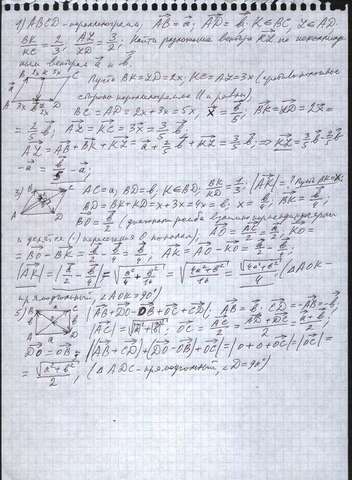 1) ABCD - параллелограмм, AB = a; AD = b; K∈BC, L∈AD.
BK/KC = 2/3; AL/LD = 3/2; Найти разложение вектора KL по неколлинеар-
ным векторам a и b.
Пусть BK = LD = 2x; KC = AL = 3x (противоположные
стороны параллелограмма || и равны)
BC = AD = 2x + 3x = 5x; x = b/5; BK = LD = 2x =
= 2/5 b; AL = KC = 3x = 3/5 b;
AL = AB + BK + KL = a + 2/5 b + KL = 3/5 b; ⇒ KL = 3/5 b - 2/5 b
- a = b/5 - a;
3) AC = a; BD = b; K∈BD; BK/KD = 1/3; |AK| = ? Пусть BK = x;
BD = BK + KD = x + 3x = 4x = b; x = b/4; BK = b/4;
BO = b/2 (диагонали ромба взаимно перпендикулярны
и делятся (·) пересечения O пополам); AO = AC/2 = a/2; KO =
= BO - BK = b/2 - b/4 = b/4; AK = AO - KO = a/2 - b/4;
|AK| = |a/2 - b/4| = √(a²/4 + b²/16) = √((4a² + b²)/16) = √(4a² + b²)/4 (△AOK -
прямоугольный, ∠AOK = 90°)
5) |AB + DO - OB + OC + CD|; AB = b; CD = -AB = -b;
|AC| = √(a² + b²); OC = AC/2 = (AD + DC)/2 = (a + b)/2;
DO = OB; |(AB + CD) + (DO - OB) + OC| = |0 + 0 + OC| = |OC| =
= √(a² + b²)/2; (△ADC - прямоугольный, ∠D = 90°)